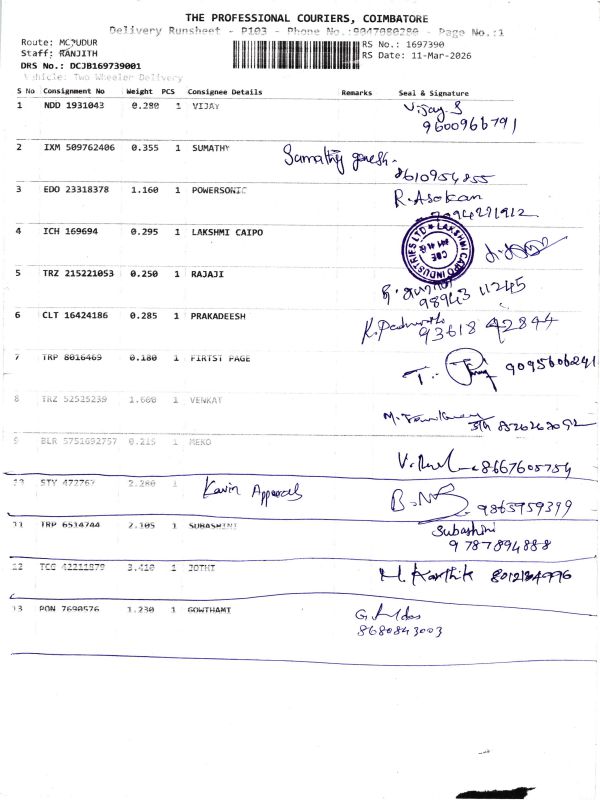 THE PROFESSIONAL COURIERS, COIMBATORE
Delivery Runsheet - P103 - Phone No.:9047080280 - Page No.:1
Route: MC
Staff: RANJITH
DRS No.: DCJB169739001
Vehicle: Two Wheeler Delivery
RS No.: 1697390
RS Date: 11-Mar-2026
S No Consignment No Weight PCS Consignee Details Remarks Seal & Signature
1 NDD 1931043 0.280 1 VIJAY Vijay.S
9600966791
2 IXM 509762406 0.355 1 SUMATHY Sumathy ganesh.
8610954855
3 EDO 23318378 1.160 1 POWERSONIC R.Asokan
7094271912
4 ICH 169694 0.295 1 LAKSHMI CAIPO
LAKSHMI CAIPO INDUSTRIES LTD
CBE
5 TRZ 215221053 0.250 1 RAJAJI
98943 11245
6 CLT 16424186 0.285 1 PRAKADEESH
93618 42844
7 TRP 8016469 0.180 1 FIRTST PAGE
8 TRZ 52525239 1.660 1 VENKAT
9 BLR 5751692757 0.215 1 MEKO
8667605754
STY 472767 2.280 1 Kavin Apparels
9865959399
11 TRP 6514744 2.105 1 SUBASHINI Subashini
9787894888
12 TCG 42211879 3.410 1 JOTHI M. Karthik
13 PON 7690576 1.230 1 GOWTHAMI
8680843003